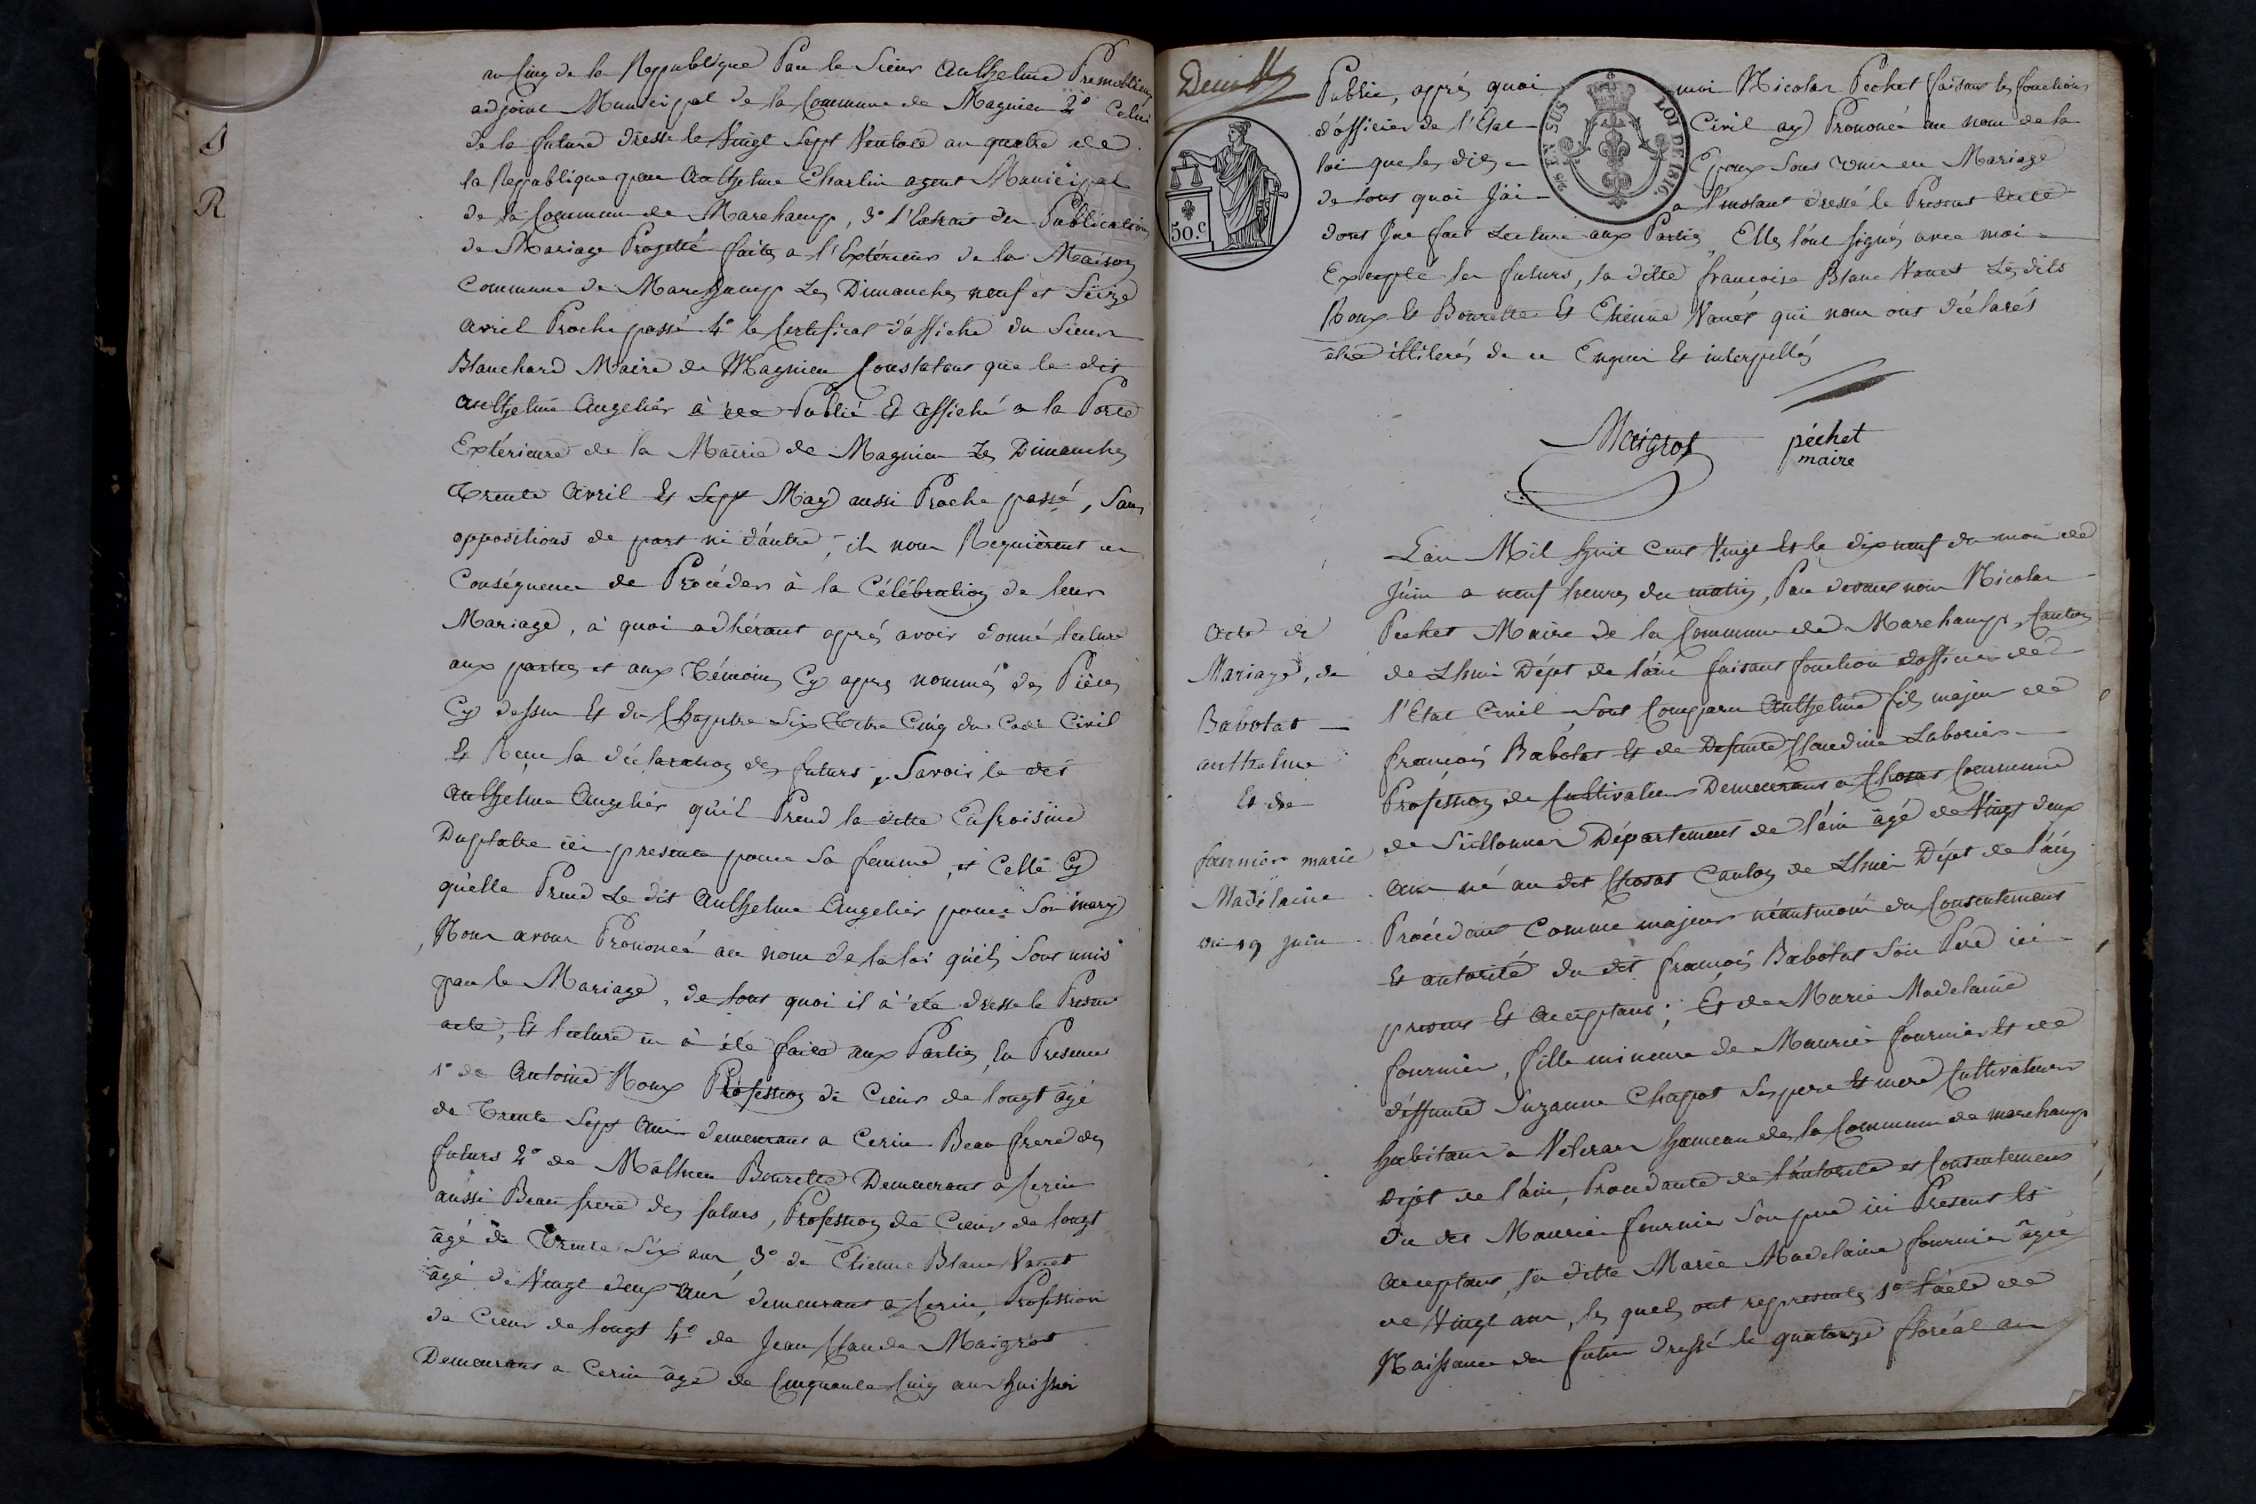 an cinq de la Reppublique Par le Sieur Anthelme
adjoint Municipal de la Commune de Magnieu 2° Celui
de la future dressé le Vingt Sept Ventose an quatre de
la Reppublique par Anthelme Charlin agent Municipal
de la Commune de Marchamp, 3° l'Extrait des Publications
de Mariage Projetté faites a l'Extérieur de la Maison
Commune de Marchamp Les Dimanches neuf et Seize
avril Proche passé 4° le Certificat d'affiche du Sieur
Blanchard Maire de Magnieu Constatant que le dit
anthelme Angelier à été Publié Et affiché a la Porte
Extérieure de la Mairie de Magnieu Les Dimanches
Trente Avril Et Sept May aussi Proche passé, Sans
oppositions de part ni d'autre, ils nous Requièrent en
Conséquence de Procéder à la Célébration de leur
Mariage, à quoi adhérant après avoir donné lecture
aux parties et aux Témoins Cy après nommés des Pièces
Cy dessus Et du Chapitre Six Titre Cinq du Code Civil
Et Reçu la déclaration des futurs, Savoir le dit
Anthelme Angelier qu'il Prend la ditte Eufroisine
Duplatre ici presente pour Sa femme, et Celle Cy
qu'elle Prend Le dit Anthelme Angelier pour Son mary
Nous avons Prononcé au nom de la loi qu'ils Sont unis
par le Mariage, de tout quoi il à été dressé le Present
acte, Et lecture en à été faite aux Parties, En Presence
1° de Antoine Roux Profession de Cieur de longt âgé
de Trente Sept Ans demeurant a Cerin Beau frere des
futurs 2° de Mathieu Bourette Demeurant a Cerin
aussi Beau frere des futurs, Profession de Cieur de longt
âgé de Trente Six ans 3° de Etienne Blanc Vanet
âgé de Vingt deux ans demeurant a Cerin, Profession
de Cieur de longt 4° de Jean Claude Maigrot
Demeurant a Cerin âgé de Cinquante Cinq ans huissier
50.C
EN SUS LOI DE 1816.
Public, après quoi moi Nicolas Pechet faisant les fonctions
d'officier de l'État Civil ay Prononcé au nom de la
loi que les dits Epoux Sont unis en Mariage
de tout quoi J'ai a l'instant dressé le Present Acte
dont J'ai fait Lecture aux Parties, Elles l'ont Signés avec moi
Excepté les futurs, la ditte francoise Blanc Vanet Les dits
Roux Et Bourette Et Etienne Vanet qui nous ont déclarés
être illiterés de ce Enquis Et interpellés
Maigrot péchet
maire
Acte de
Mariage, de
Babolat
anthelme
Et de
fournier marie
Madelaine
du 19 Juin
L'an Mil huit Cent Vingt Et le dix neuf du mois de
Juin a neuf heures du matin, Par devant nous Nicolas
Pechet Maire de la Commune de Marchamp, Canton
de Lhuis Dépt de l'ain faisant fonction d'officier de
l'Etat Civil Sont Comparu Anthelme fils majeur de
françois Babolat Et de Defunte Claudine Laborier
Profession de Cultivateur Demeurant a Chosas Commune
de Seillonnas Département de l'ain âgé de Vingt deux
Ans né au dit Chosas Canton de Lhuis Dépt de l'ain
Procédant Comme majeur néantmoins du Consentement
Et autorité du dit françois Babolat Son Pere ici
present Et Acceptant; Et de Marie Madelaine
fournier, fille mineure de Maurice fournier Et de
déffunte Suzanne Chapot Ses pere Et mere Cultivateurs
habitans a Véleran hameau de la Commune de marchamp
Dépt de l'ain, Procedante de l'autorité et Consentement
du dit Maurice fournier Son pere ici Present Et
Acceptant, la ditte Marie Madelaine fournier âgée
de Vingt ans, les quels ont representés 1° l'acte de
Naissance du futur dressé le quatorze floréal an